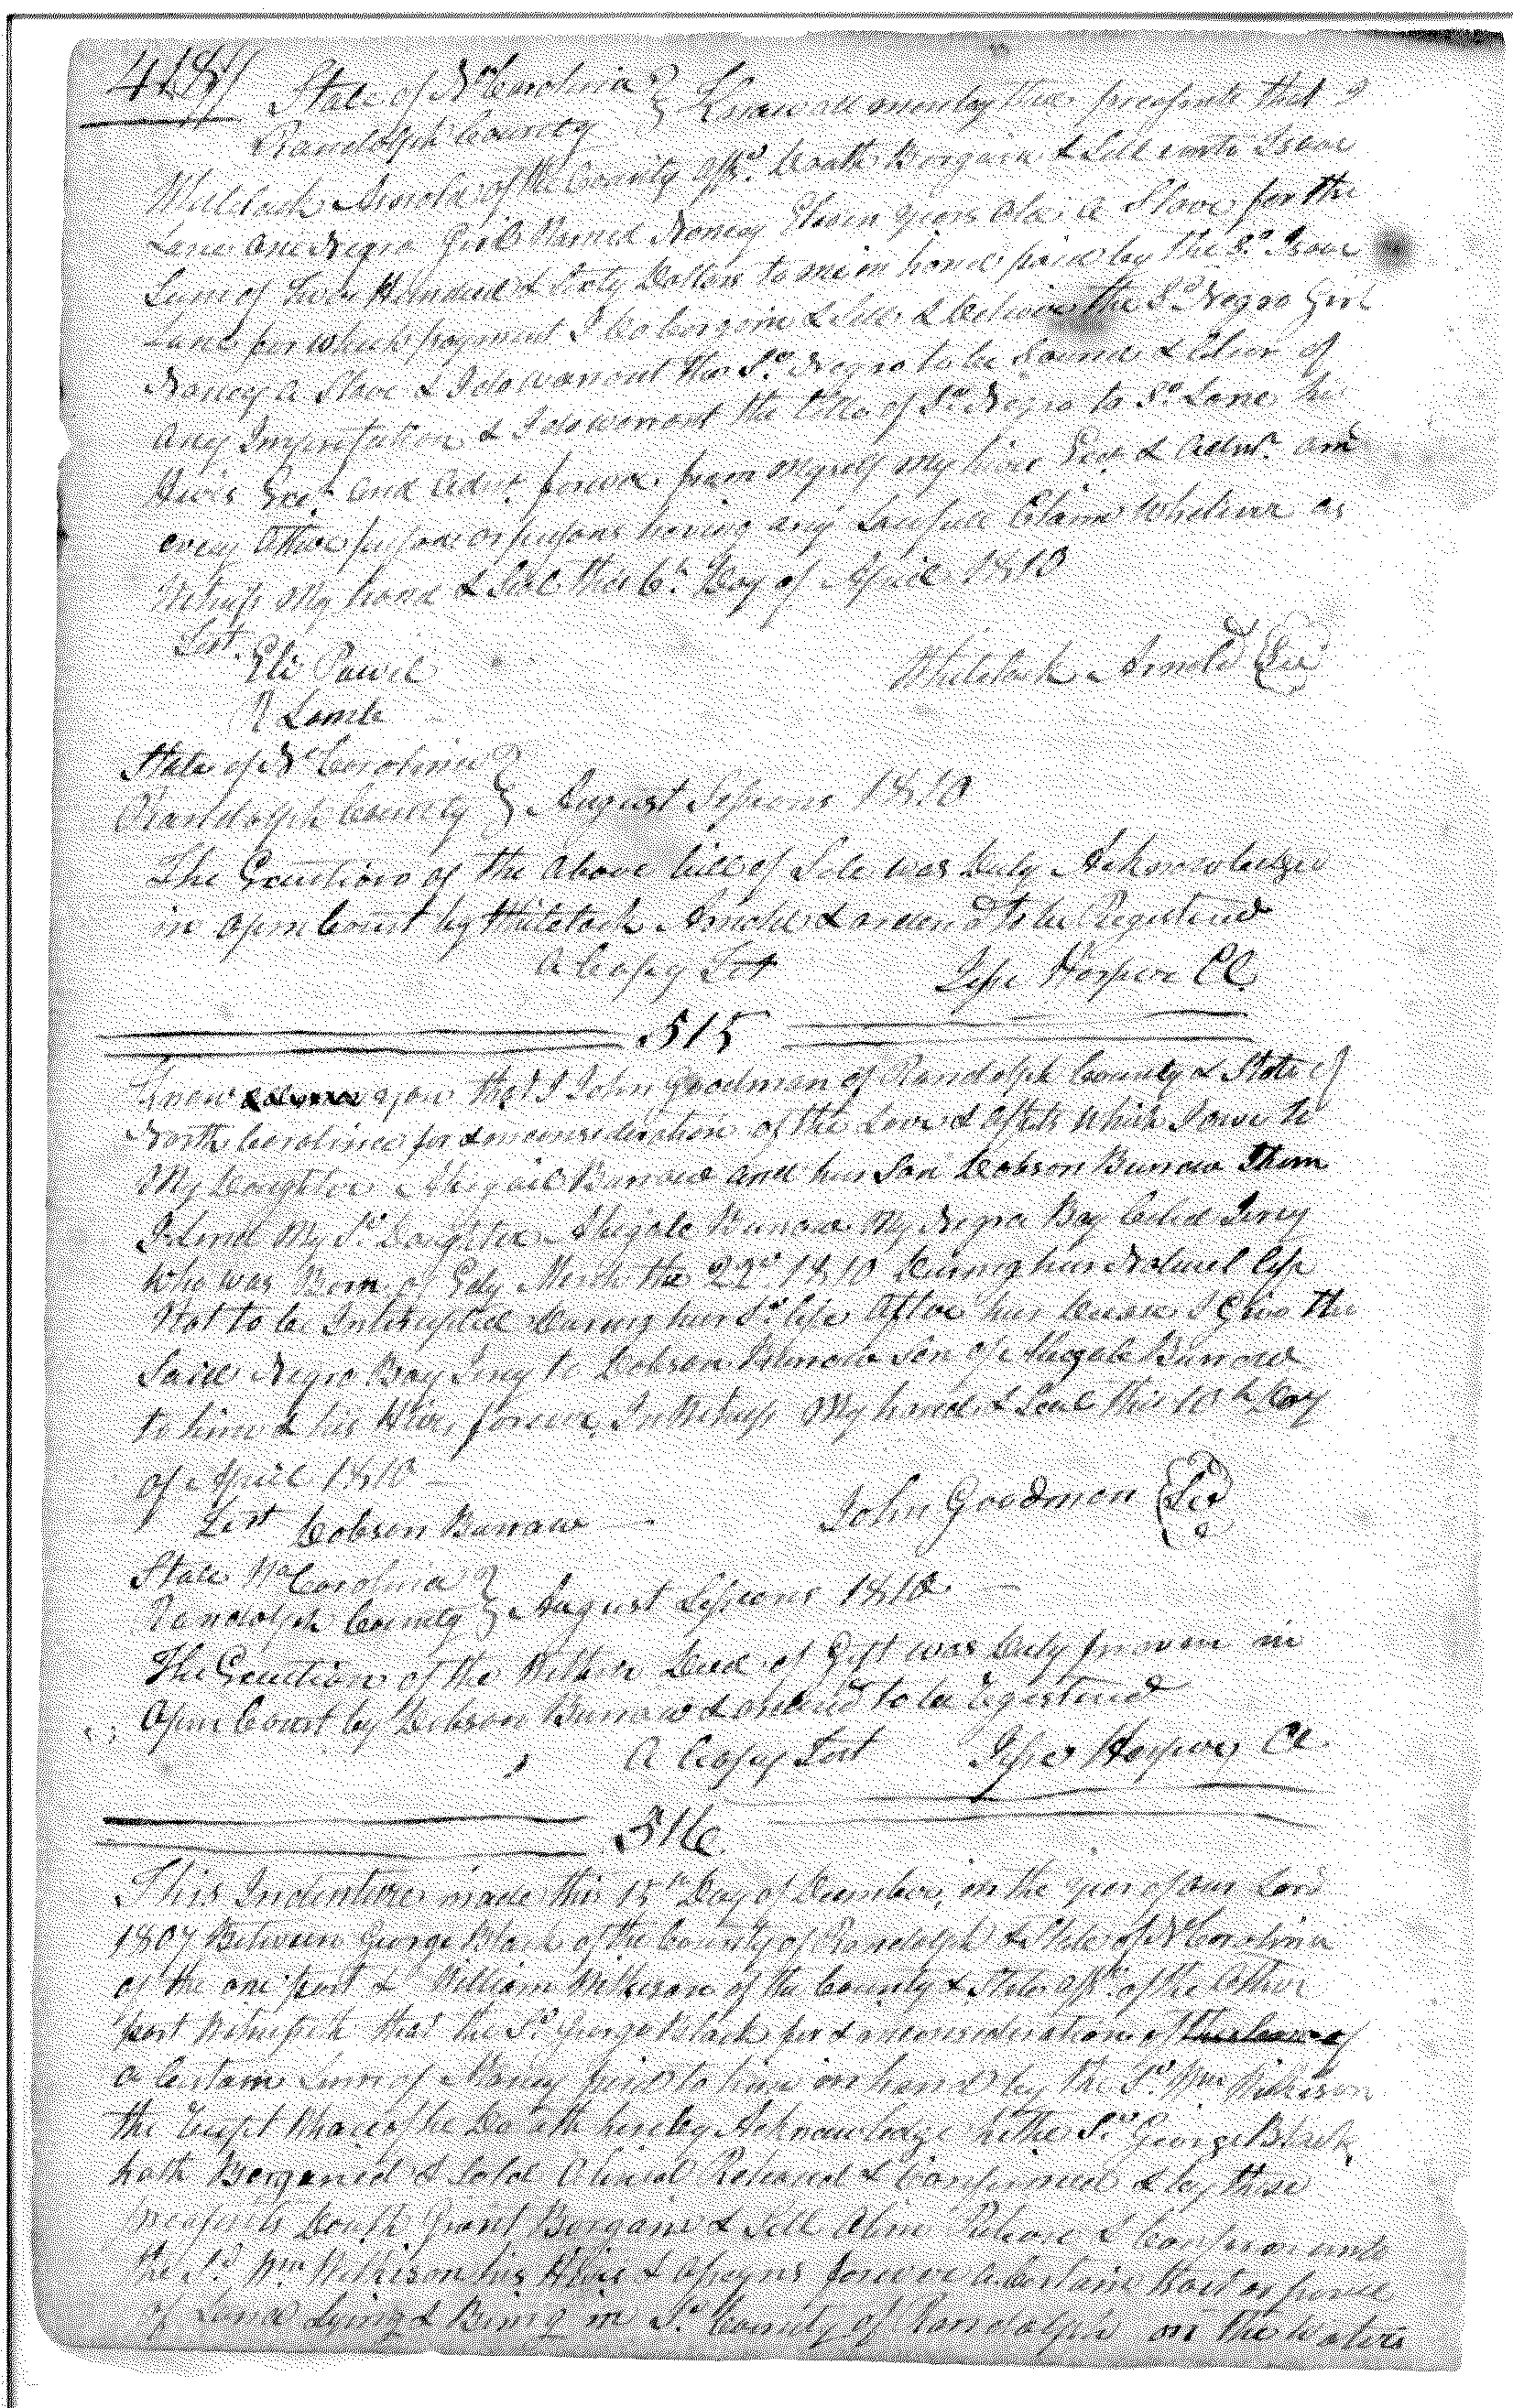 State of No Carolina } Know all men by these presents that I
Randolph County
Whitelock Arnold of the County affsd. Doath Bargain & Sell unto Isaac
Lane one Negro Girl Named Nancy Eleven years old a Slave for the
Sum of Two Hundred & Sixty Dollars to me in hand paid by the Sd. Isaac
Lane for which payment I Do bargain & Sell & Deliver the Sd Negro Girl
Nancy a Slave & I do warrant the Sd. Negro to be Sound & Clear of
any & I do warrant the title of Sd. Negro to Sd. Lane his
Heirs Exe. and Adm. forever from Myself my heirs Exe. & Adm. and
every other person or persons having any Lawfull Claim Whatever as
Witness My hand & Seal this 6th Day of April 1810
Test.
Eli Powel Whitelock Arnold
Lamb
State of No Carolina }
Randolph County } August Sessions 1810
The Execution of the above bill of Sale was Duly Acknowledge
in open Court by Whitelock Arnold & ordered to be Registered
A Copy Test Jesse Harper CC
515
Know you that I John Goodman of Randolph County & State of
North Carolina for & in consideration of the Love & which I owe to
My Daughter Abigail Burrow and her Son Dobson Burrow Them
I Lend My Sd Daughter Abigale Burrow My Negro Boy Caled
who was Born of Edy March the 22nd 1810 During her Natural life
Not to be Interupted During her Sd life After her Decease I Give the
Said Negro Boy to Dobson Burrow Son of Abegale Burrow
to him & his Heirs forever In Witness My hand & Seal this 10th Day
of April 1810
Test Dobson Burrow John Goodman
State No Carolina }
Randolph County } August Sessions 1810
The Execution of the Within Deed of Gift was Duly proven in
Open Court by Dobson Burrow & ordered to be Registered
A Copy Test Jesse Harper CC
516
This Indenture made this 15th Day of December in the year of our Lord
1807 Between George Black of the County of Randolph & State of N Carolina
of the one part & William Wilkeson of the County & State affsd. of the other
part Witnesseth that the Sd. George Black for & in consideration of
a Certain Sum of Money paid to him in hand by the Sd. Wm Wilkeson
the Receipt Whareof he Do ath hereby Acknowledge he the Sd. George Black
hath Bargened & Sold Released & Confirmed & by these
presents Doath Grant Bargain & Sell Release & Confirm unto
the Sd. Wm Wilkison his Heirs & Assigns forever a Certain Tract or parcel
of Land Lying & Being in Sd. County of Randolph on the Waters